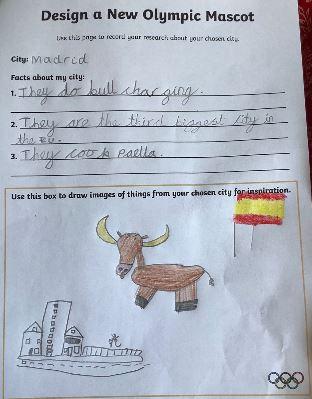 Design a New Olympic Mascot
Use this page to record your research about your chosen city.
City: Madrid
Facts about my city:
1. They do bull charging.
2. They are the third biggest city in
the EU.
3. They cook paella.
Use this box to draw images of things from your chosen city for inspiration.